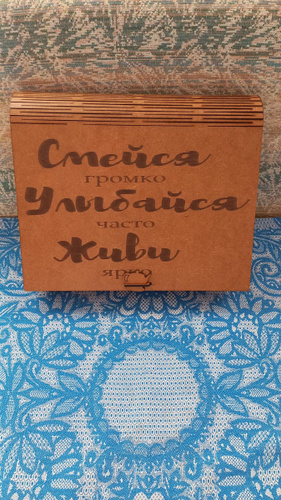 Смейся
громко
Улыбайся
часто
Живи
ярко